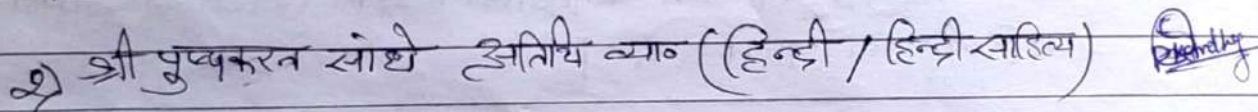 2) श्री पुष्पकरन सोंधे अतिथि व्या० (हिन्दी / हिन्दी साहित्य)